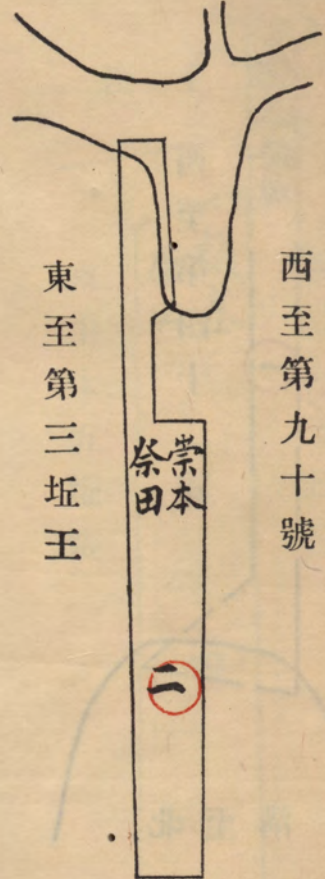 西至第九十號
崇本
祭田
二
東至第三坵王